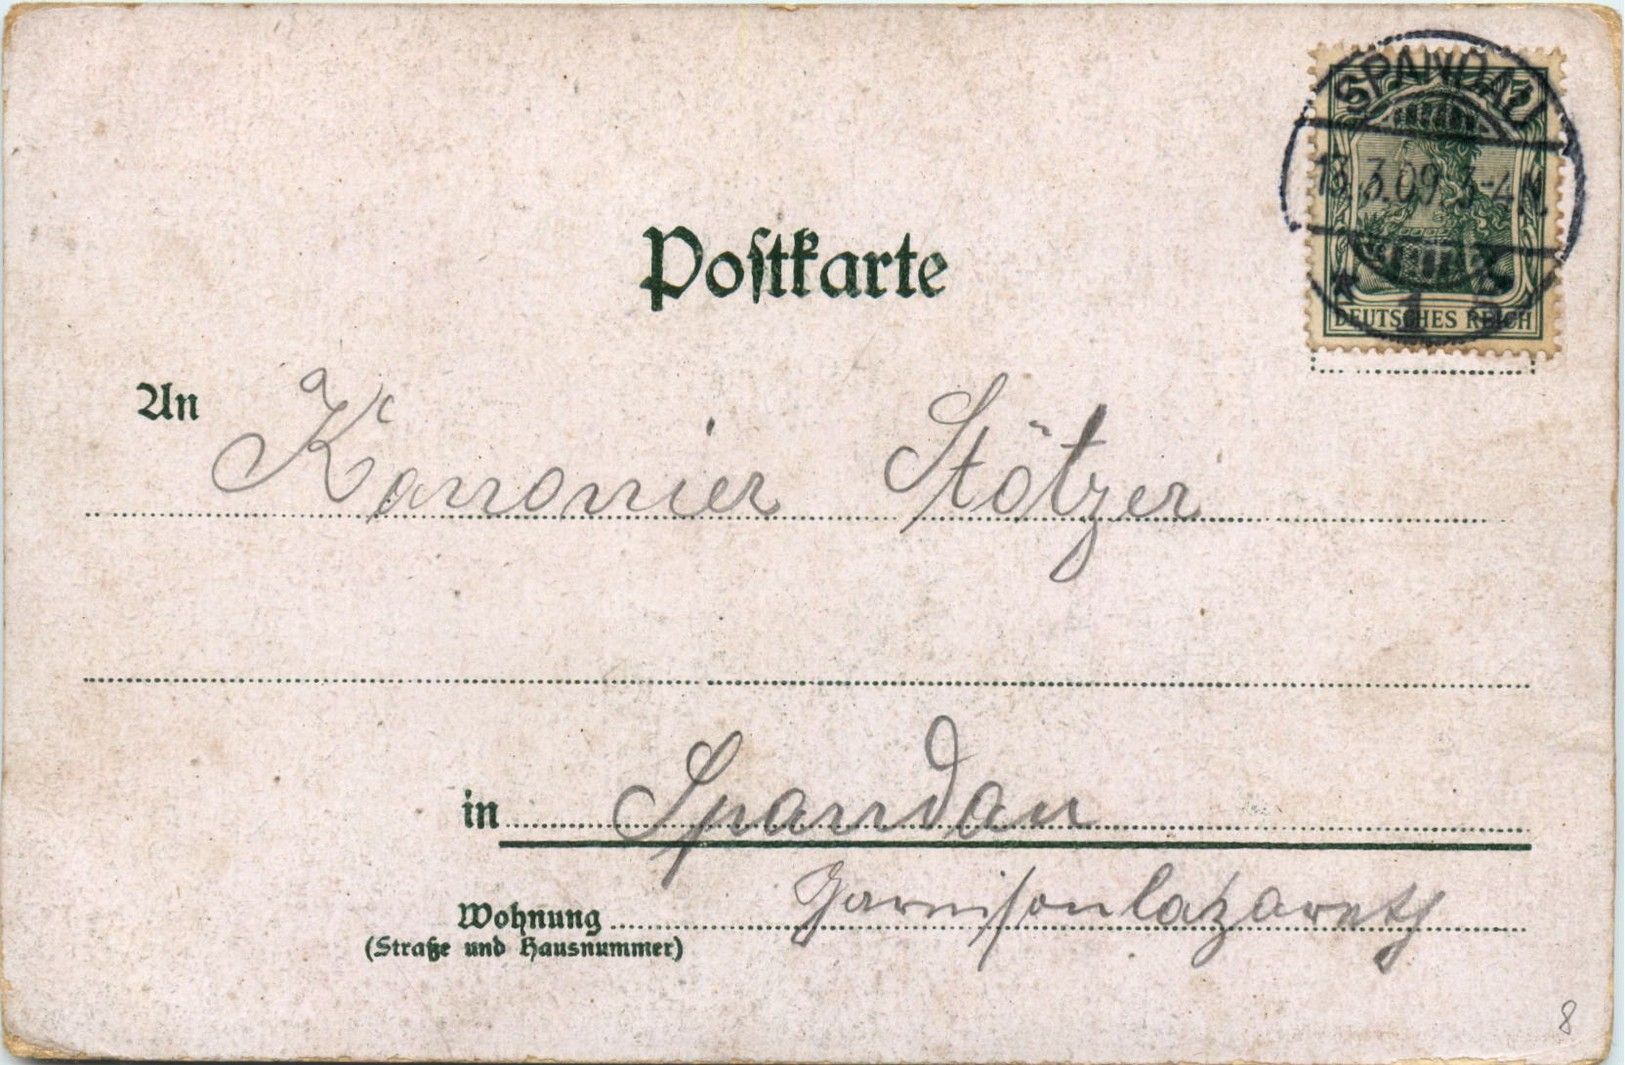 SPANDAU
5 5
13.3.09. 3-4 N.
* 1
DEUTSCHES REICH
Postkarte
An Kanonier Stötzer
in Spandau
Wohnung Garnisonlazareth
(Straße und Hausnummer)
8